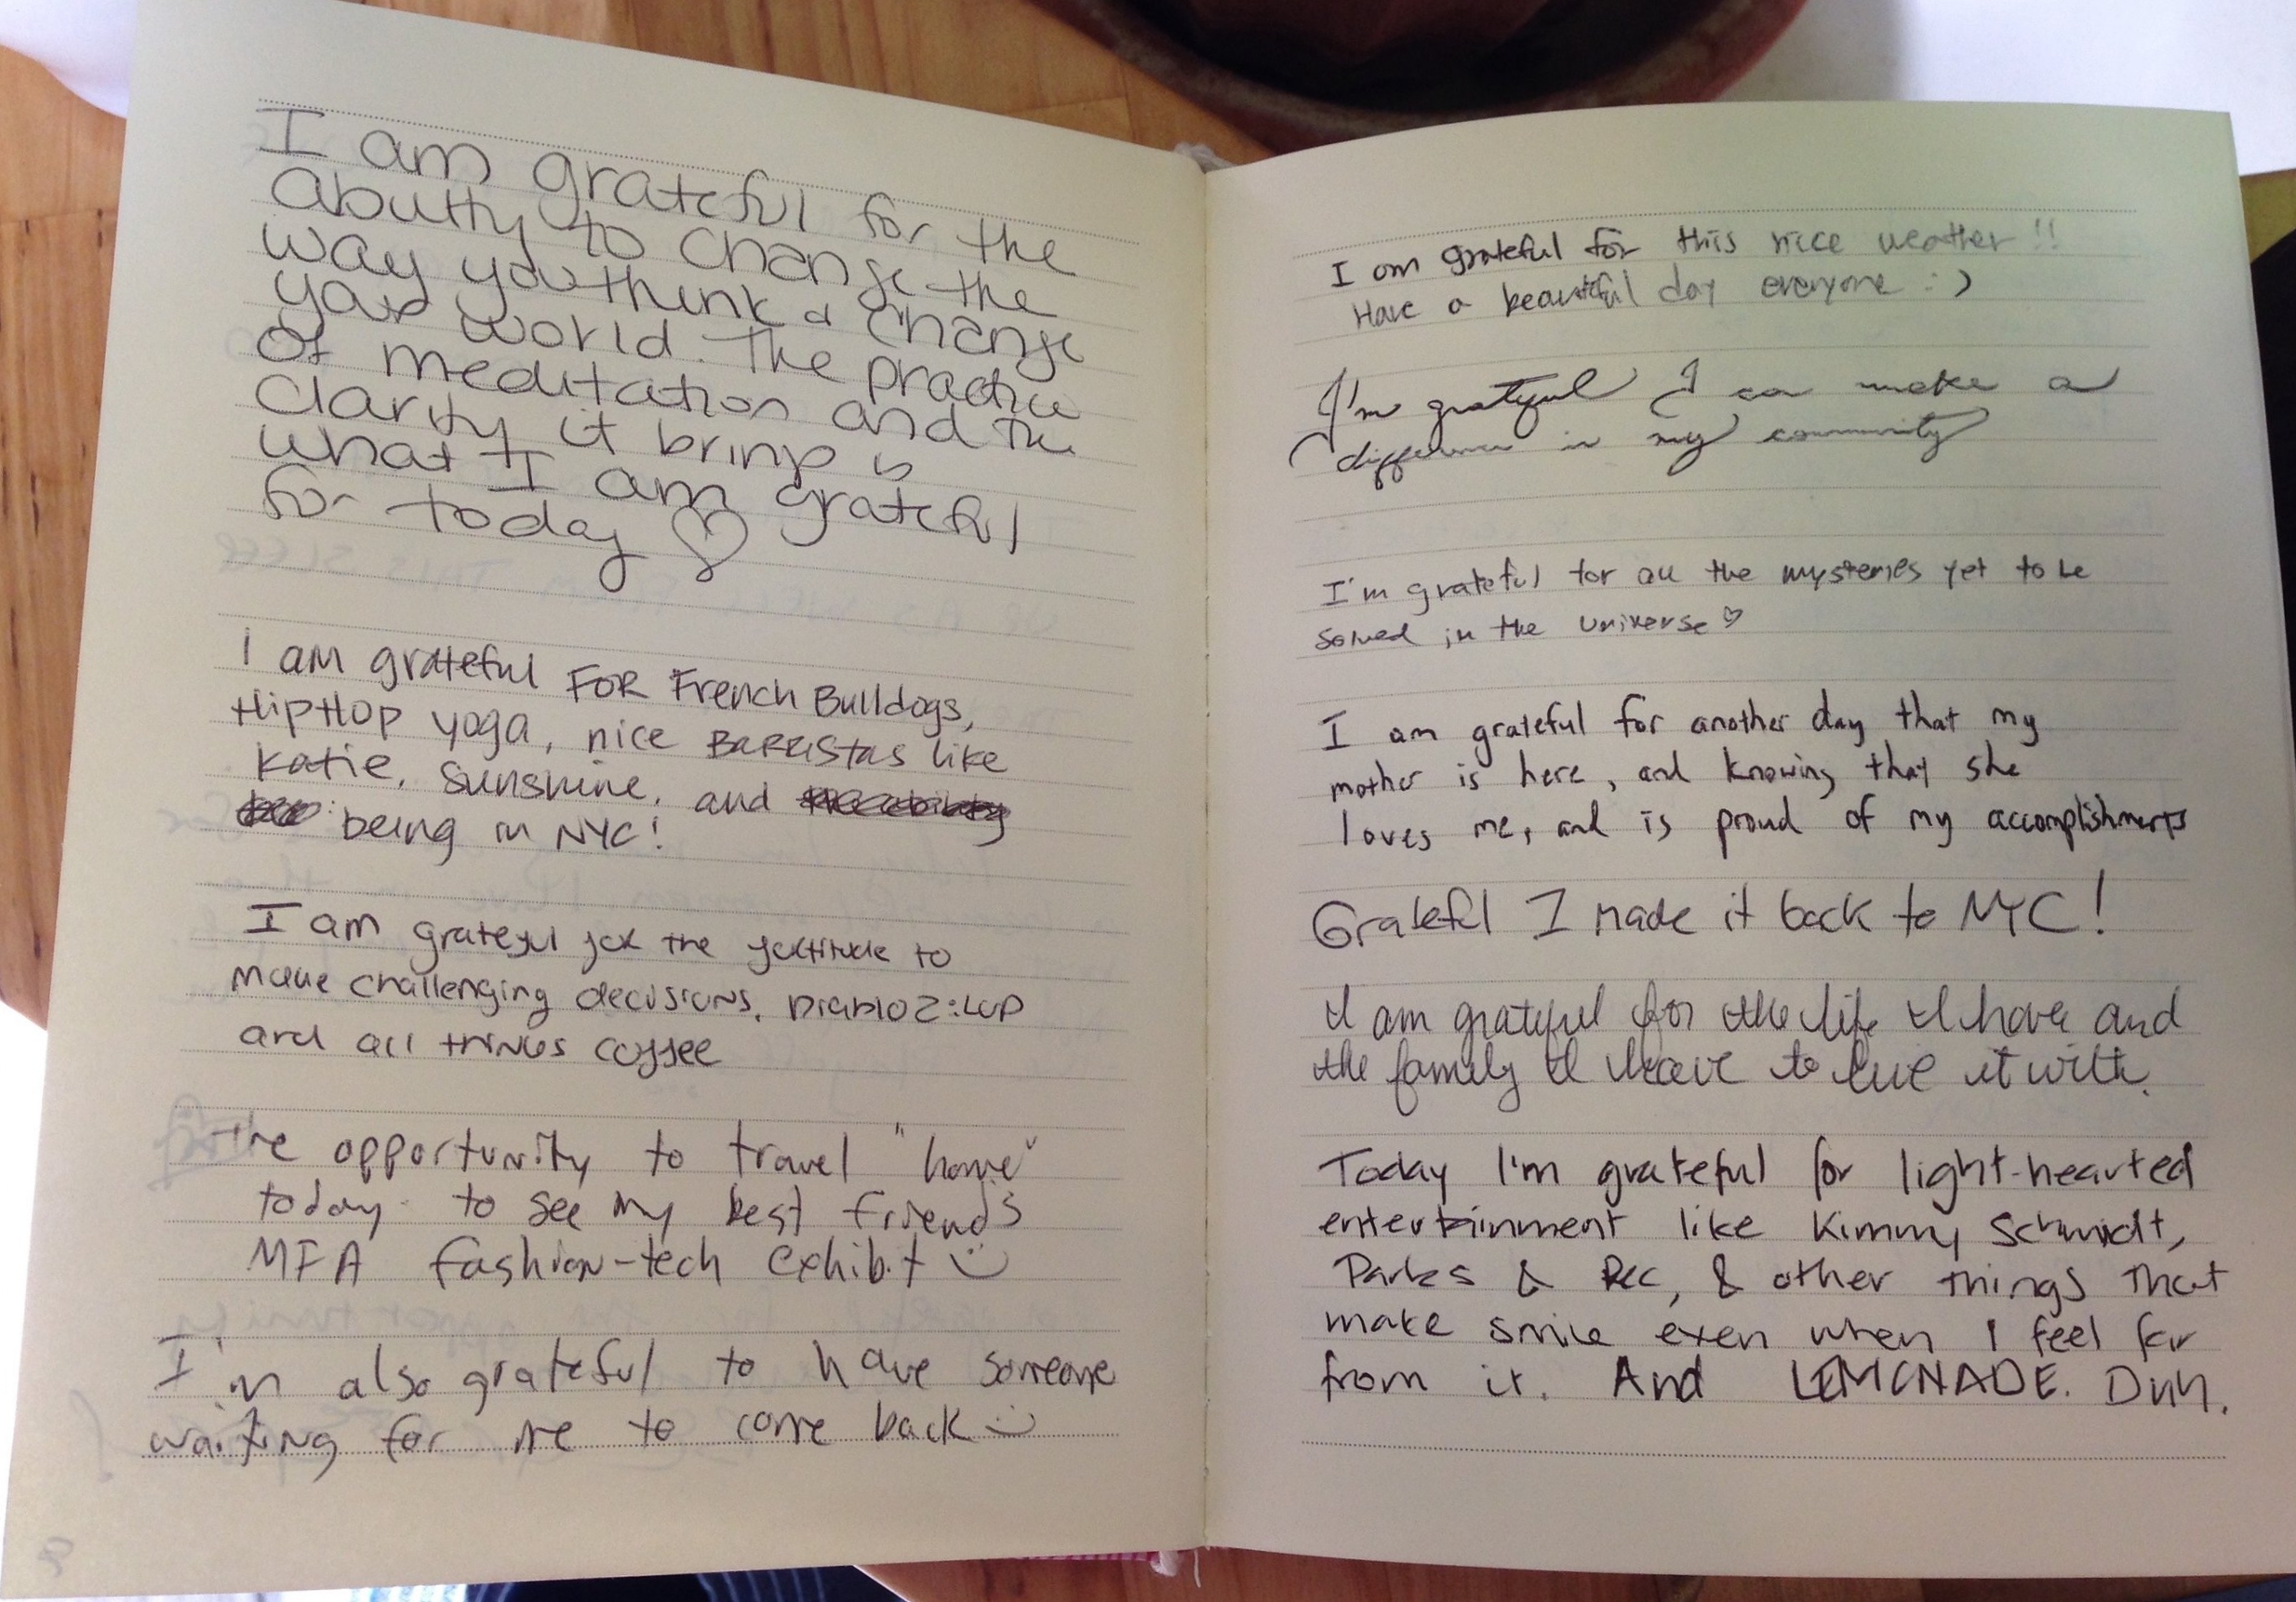 I am grateful for the
abiltty to change the
way you think & change
your world. The practice
of meditation and the
clarity it brings is
what I am grateful
for today ♡
I am grateful FOR French Bulldogs,
HipHop yoga, nice BARRISTAS like
Katie, sunshine, and
being in NYC!
I am grateful for the fortitude to
make challenging decisions, Diablo 2: LOD
and all things coffee
The opportunity to travel "home"
today to see my best friends
MFA fashion-tech exhibit :)
I'm also grateful to have someone
waiting for me to come back :)
I am grateful for this nice weather!!
Have a beautiful day everyone :)
I'm grateful I can make a
difference in my community
I'm grateful for all the mysteries yet to be
solved in the universe ♡
I am grateful for another day that my
mother is here, and knowing that she
loves me, and is proud of my accomplishments
Grateful I made it back to NYC!
I am grateful for the life I have and
the family I have to live it with.
Today I'm grateful for light-hearted
entertainment like Kimmy Schmidt,
Parks & Rec, & other things that
make smile even when I feel far
from it. And LEMONADE. Duh.